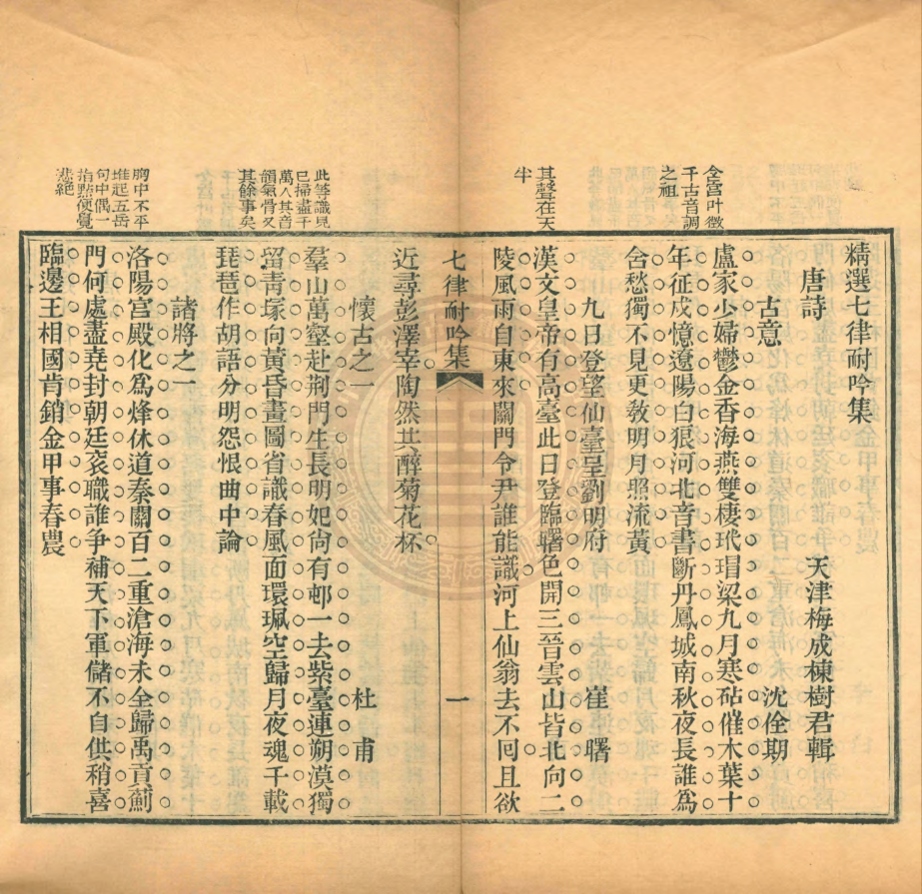 精選七律耐吟集
唐詩 天津梅成棟樹君輯
古意 沈佺期
宮叶徵
千古音調
之祖
盧家少婦鬱金香海燕雙棲玳瑁梁九月寒砧催木葉十
年征戍憶遼陽白狼河北音書斷丹鳳城南秋夜長誰爲
含愁獨不見更敎明月照流黃
九日登望仙臺呈劉明府 崔曙
其聲在天
半
漢文皇帝有高臺此日登臨曙色開三晉雲山皆北向二
陵風雨自東來關門令尹誰能識河上仙翁去不囘且欲
七律耐吟集 一
近尋彭澤宰陶然共醉菊花杯
懷古之一 杜甫
此等識見
已掃盡千
萬人其音
韻氣骨又
其餘事矣
羣山萬壑赴荆門生長明妃尙有邨一去紫臺連朔漠獨
留靑塚向黃昏畫圖省識春風面環珮空歸月夜魂千載
琵琶作胡語分明怨恨曲中論
諸將之一
胸中不平
堆起五岳
句中偶一
指點便覺
悲絕
洛陽宮殿化爲烽休道秦關百二重滄海未全歸禹貢薊
門何處盡堯封朝廷袞職誰爭補天下軍儲不自供稍喜
臨邊王相國肯銷金甲事春農